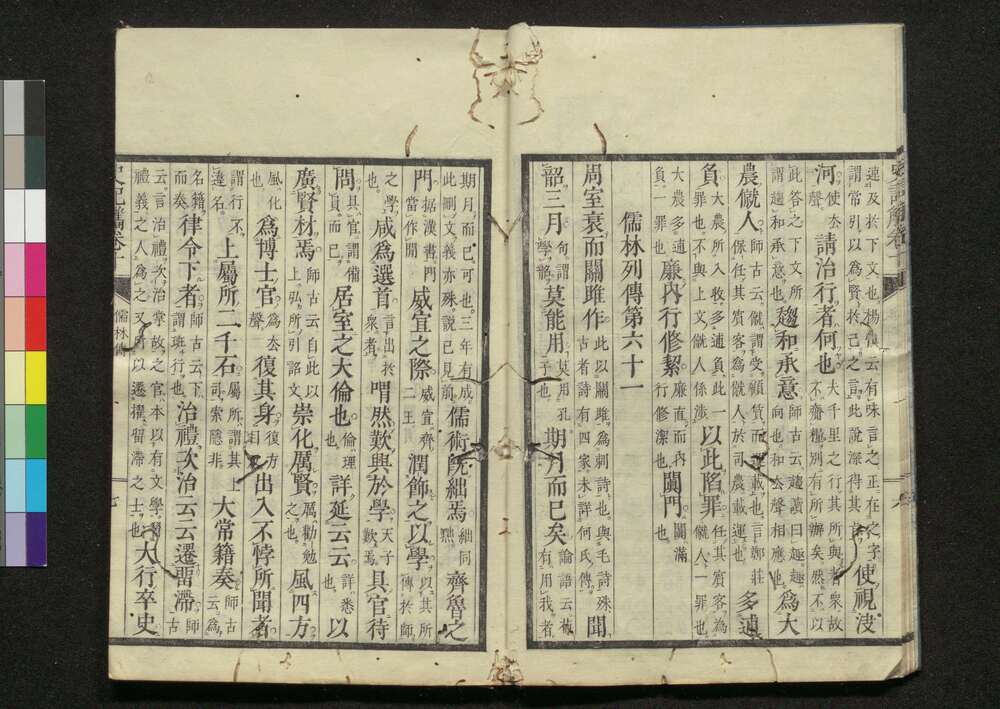 連及於下文也楊慎云有味言之正在定字使視決
謂常引以為賢於己之言此說深得其旨
河使去聲請治行者何也大千里之行其所與者衆故不齎糧別有所辦矣然不以
此答之下文所謂趨和承意也趨和承意師古云趨讀曰趣趣向也和去聲相應也為大
農僦人師古云僦謂受顧賃而運載也言鄭莊保任其賓客為僦人於司農載運也多逋
負大農所入收多逋負此一罪也不與上文僦人係涉以此陷罪任其賓客為僦人一罪也
大農多逋負一罪也廉內行修絜廉直而內行修潔也闐門闐滿也
儒林列傳第六十一
周室衰而關雎作此以關雎為刺詩也與毛詩殊古者詩有四家未詳何氏傳聞
韶三月句謂學韶莫能用莫用孔子也期月而已矣論語云苟有用我者
期月而已可也三年有成此刪文義亦殊說已見前儒術既絀焉絀同黜齊魯之
門据漢書門當作閒威宣之際威宣齊二王潤飾之以學以其所傳於師
之學咸為選首言出於衆者喟然歎興於學天子歎焉具官待
問具官謂備員而已居室之大倫也倫理也詳延云云詳悉也以
廣賢材焉師古云自此以上弘所引詔文崇化厲賢厲勸勉之也風四方
風化也為博士官為去聲復其身復方目切出入不悖所聞者
謂行不違名上屬所二千石屬所謂其上司索隱非大常籍奏師古云為
名籍而奏律令下者師古云下謂班行也治禮次治云云遷留滯師古
云言治禮次治掌故之官本以有文學習禮義之人為之又所以遷擢留滯之士也大行卒史
史記雕卷十
儒林傳